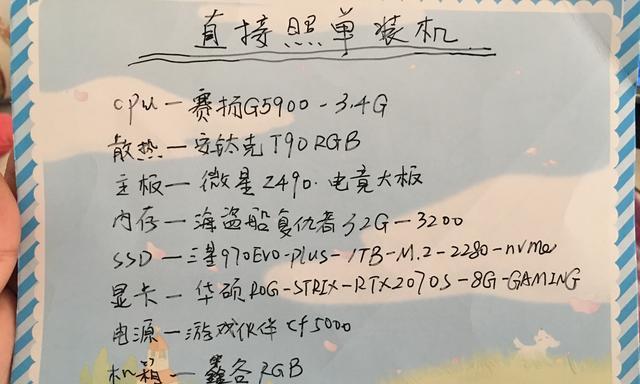 直接照单装机
cpu—赛扬G5900-3.4G
散热—安钛克T90RGB
主板—微星Z490.电竞大板
内存—海盗船复仇者32G-3200
SSD—三星970EVO-plus-1TB-M.2-2280-nvme
显卡—华硕ROG-STRIX-RTX2070S-8G-GAMING
电源—游戏伙伴cf5000
机箱—鑫谷RGB